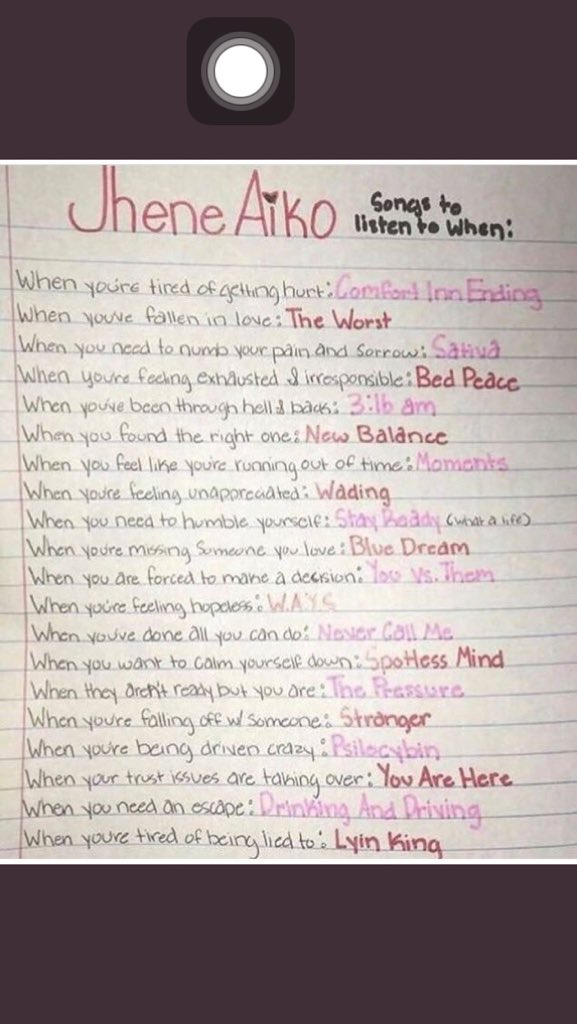 Jhene Aiko Songs to listen to when:
When you're tired of getting hurt: Comfort Inn Ending
When you've fallen in love: The Worst
When you need to numb your pain and sorrow: Sativa
When you're feeling exhausted & irresponsible: Bed Peace
When you've been through hell & back: 3:16 am
When you found the right one: New Balance
When you feel like you're running out of time: Moments
When you're feeling unappreciated: Wading
When you need to humble yourself: Stay Ready (what a life)
When you're missing someone you love: Blue Dream
When you are forced to make a decision: You Vs. Them
When you're feeling hopeless: W.A.Y.S
When you've done all you can do: Never Call Me
When you want to calm yourself down: Spotless Mind
When they aren't ready but you are: The Pressure
When you're falling off w/ someone: Stranger
When you're being driven crazy: Psilocybin
When your trust issues are taking over: You Are Here
When you need an escape: Drinking And Driving
When you're tired of being lied to: Lyin King